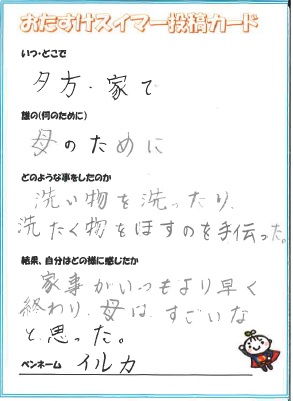 おたすけスイマー投稿カード
いつ・どこで
夕方・家で
誰の(何のために)
母のために
どのような事をしたのか
洗い物を洗ったり、
洗たく物をほすのを手伝った。
結果、自分はどの様に感じたか
家事がいつもより早く
終わり、母は、すごいな
と、思った。
ペンネーム イルカ